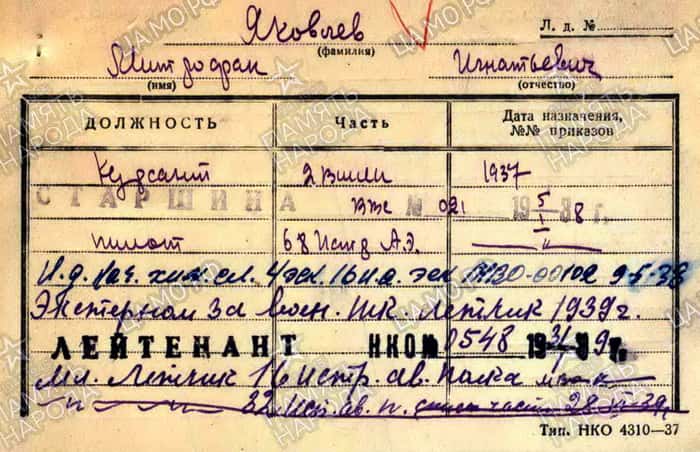 Яковлев
Л. д. №
(фамилия)
Митрофан Игнатьевич
(имя) (отчество)
ДОЛЖНОСТЬ Часть Дата назначения, №№ приказов
Курсант 2 вшли 1937
СТАРШИНА № 021 19 5/I 38 г.
пилот 68 Истр А.Э. — " —
И.д. нач. хим. сл. 4 эск. 16 и.а. эск 00102 9-5-38
Экстерном за воен. шк. Летчик 1939 г.
ЛЕЙТЕНАНТ НКО № 0548 19 31/ 39 г.
Мл. Летчик 16 истр. ав. полка
— " — 32 ист. ав. п. 28 VI-39г.
Тип. НКО 4310—37
ЦАМО РФ
ПАМЯТЬ НАРОДА